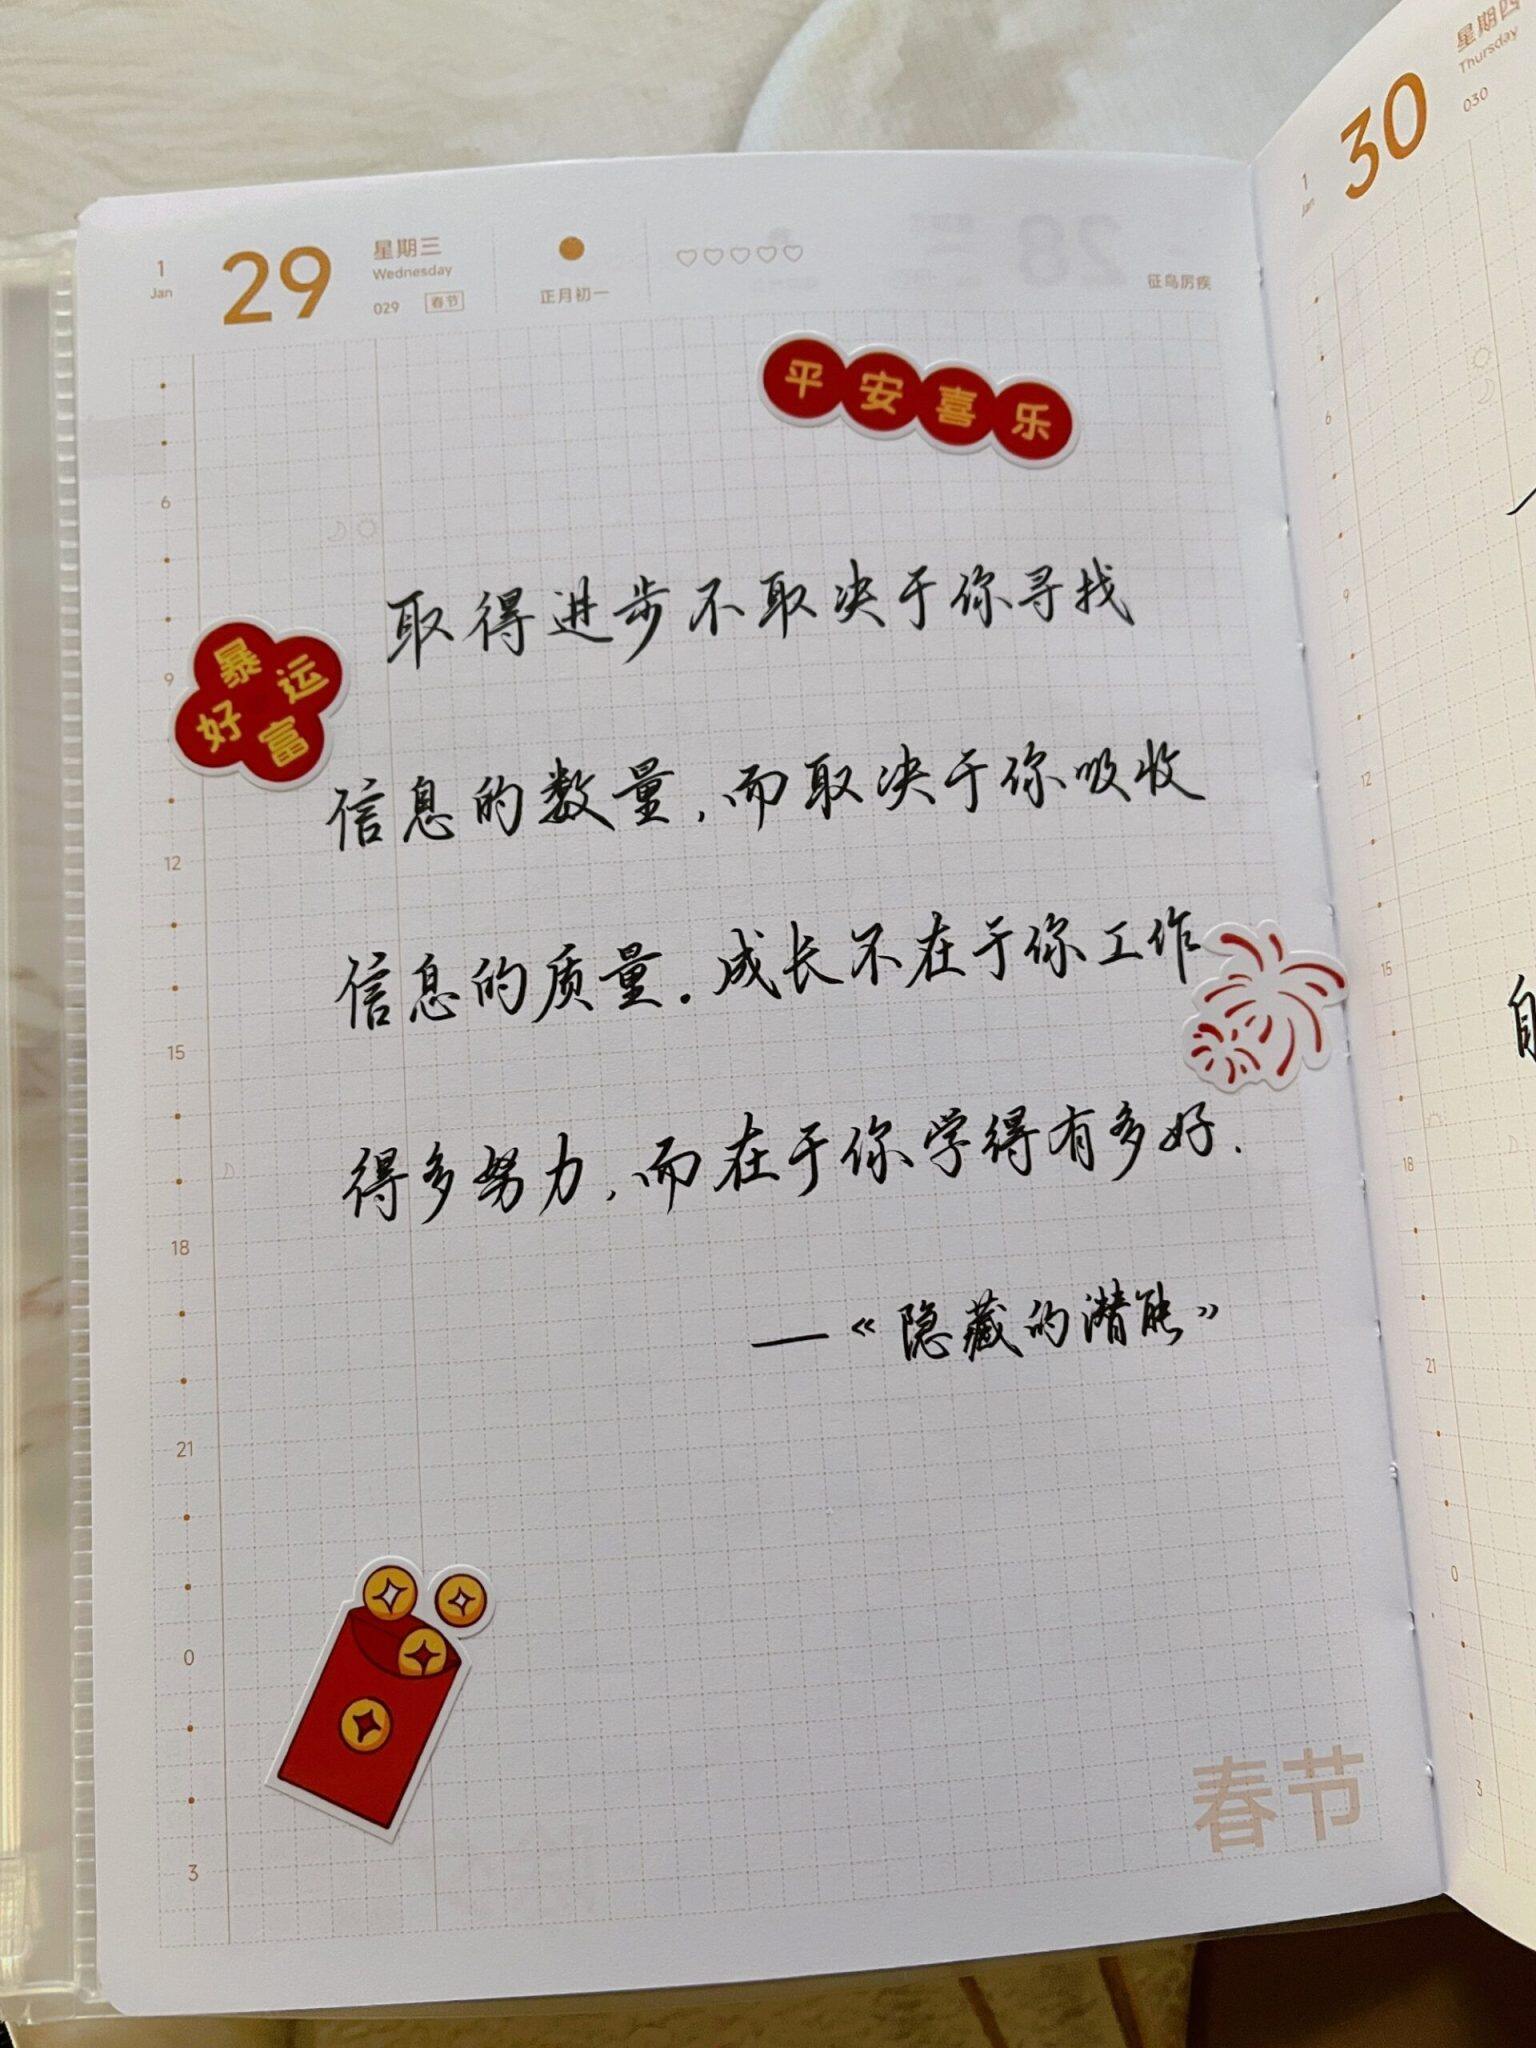 1
Jan
29
星期三
Wednesday
029 春节
正月初一
征鸟厉疾
平安喜乐
取得进步不取决于你寻找
暴
好运
富
信息的数量，而取决于你吸收
信息的质量。成长不在于你工作
得多努力，而在于你学得有多好.
—《隐藏的潜能》
春节
6
9
12
15
18
21
0
3
1
Jan
30
星期四
Thursday
030
6
9
12
15
18
21
0
3